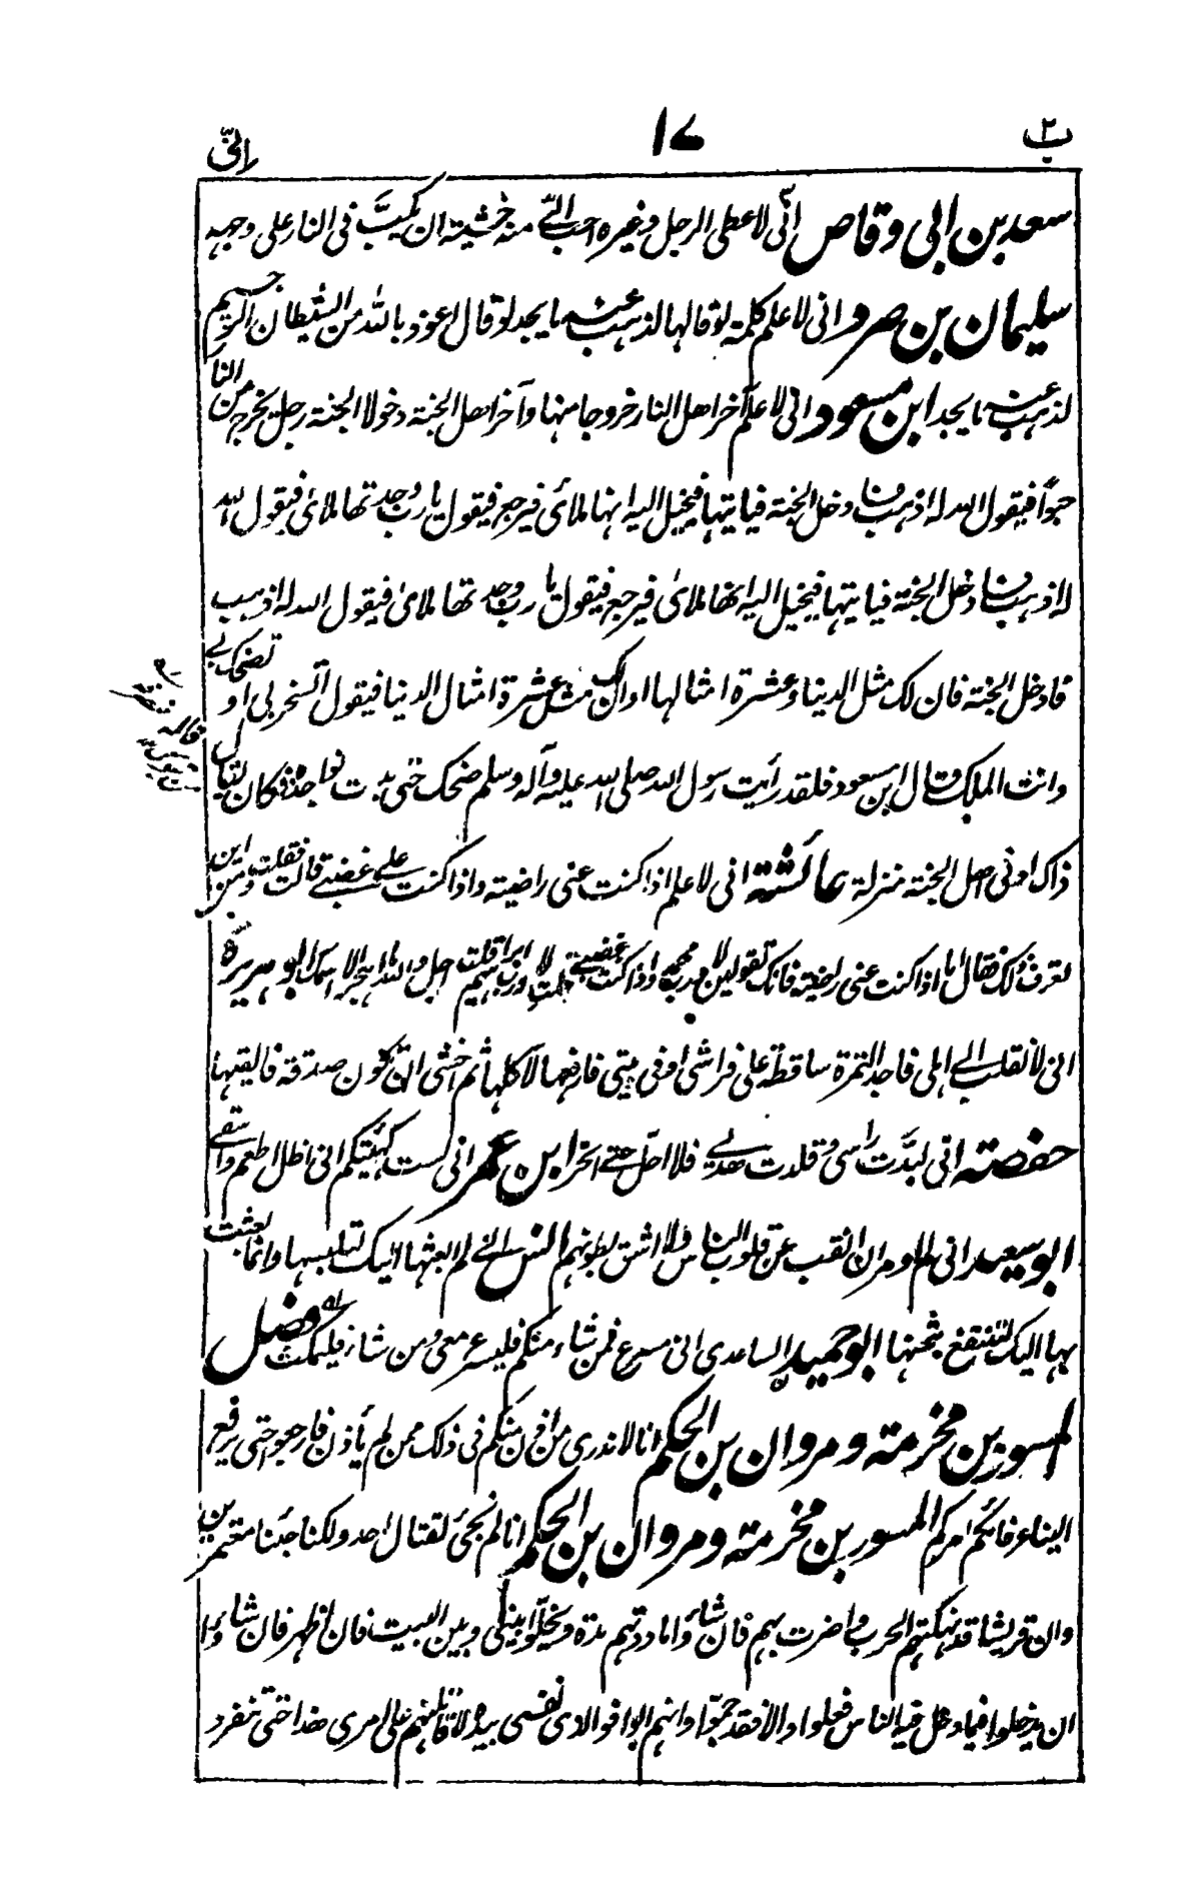 ب۲ ۱۷ انّی
سعد بن ابی وقاص انّی لاعطی الرجل وغیره احب الیّ منه خشیته ان یکبَّ فی النار علی وجهه
سلیمان بن صرد انی لاعلم کلمة لو قالها لذهب عنه ما یجد لو قال اعوذ بالله من الشیطان الرجیم
لذهب عنه ما یجد ابن مسعود انی لاعلم آخر اهل النار خروجا منها وآخر اهل الجنة دخولا الجنة رجل یخرج من النار
حبوًا فیقول الله له اذهب فادخل الجنة فیاتیها فیخیل الیه انها ملائ فیرجع فیقول یا رب وجدتها ملائ فیقول الله
له اذهب فادخل الجنة فیاتیها فیخیل الیه انها ملائ فیرجع فیقول یا رب وجدتها ملائ فیقول الله له اذهب
فادخل الجنة فان لک مثل الدنیا وعشرة امثالها او ان لک مثل عشرة امثال الدنیا فیقول أتسخر بی او تضحک بی
وانت الملک وقال ابن مسعود فلقد رأیت رسول الله صلی الله علیه وآله وسلم ضحک حتی بدت نواجذه فکان یقال
ذاک ادنی اهل الجنة منزلة عائشة انی لاعلم اذا کنت عنی راضیته واذا کنت علی غضبی قالت فقلت ومن این
تعرف ذلک فقال اما اذا کنت عنی راضیته فانک تقولین لا ورب محمد واذا کنت غضبی قلت لا ورب ابراهیم قلت اجل والله ما اهجر الا اسمک ابو هریرة
انی لانقلب الی اهلی فاجد التمرة ساقطة علی فراشی او فی بیتی فارفعها لآکلها ثم اخشی ان تکون صدقة فالقیها
حفصة انی لبّدت راسی وقلدت هدیی فلا احل حتی انحر ابن عمر انی لست کهیئتکم انی اظل اطعم واسقی
ابو سعید انی لم اومر ان انقب عن قلوب الناس ولا اشق بطونهم انس انی لم ابعثها الیک لتلبسها وانما بعثت
بها الیک لتنتفع بثمنها ابو حمید الساعدی انی مسرع فمن شاء منکم فلیسرع معی ومن شاء فلیمکث فصل
المسور بن مخرمة ومروان بن الحکم انا لا ندری من اذن منکم فی ذلک ممن لم یأذن فارجعوا حتی یرفع
الینا عرفاؤکم امرکم المسور بن مخرمة ومروان بن الحکم انا لم نجئ لقتال احد ولکنا جئنا معتمرین
وان قریشا قد نهکتهم الحرب واضرت بهم فان شاؤا ماددتهم مدة ویخلّوا بینی وبین البیت فان اظهر فان شاؤا
ان یدخلوا فیما دخل فیه الناس فعلوا والا فقد جمّوا وانهم ابوا فوالذی نفسی بیده لاقاتلنهم علی امری هذا حتی تنفرد